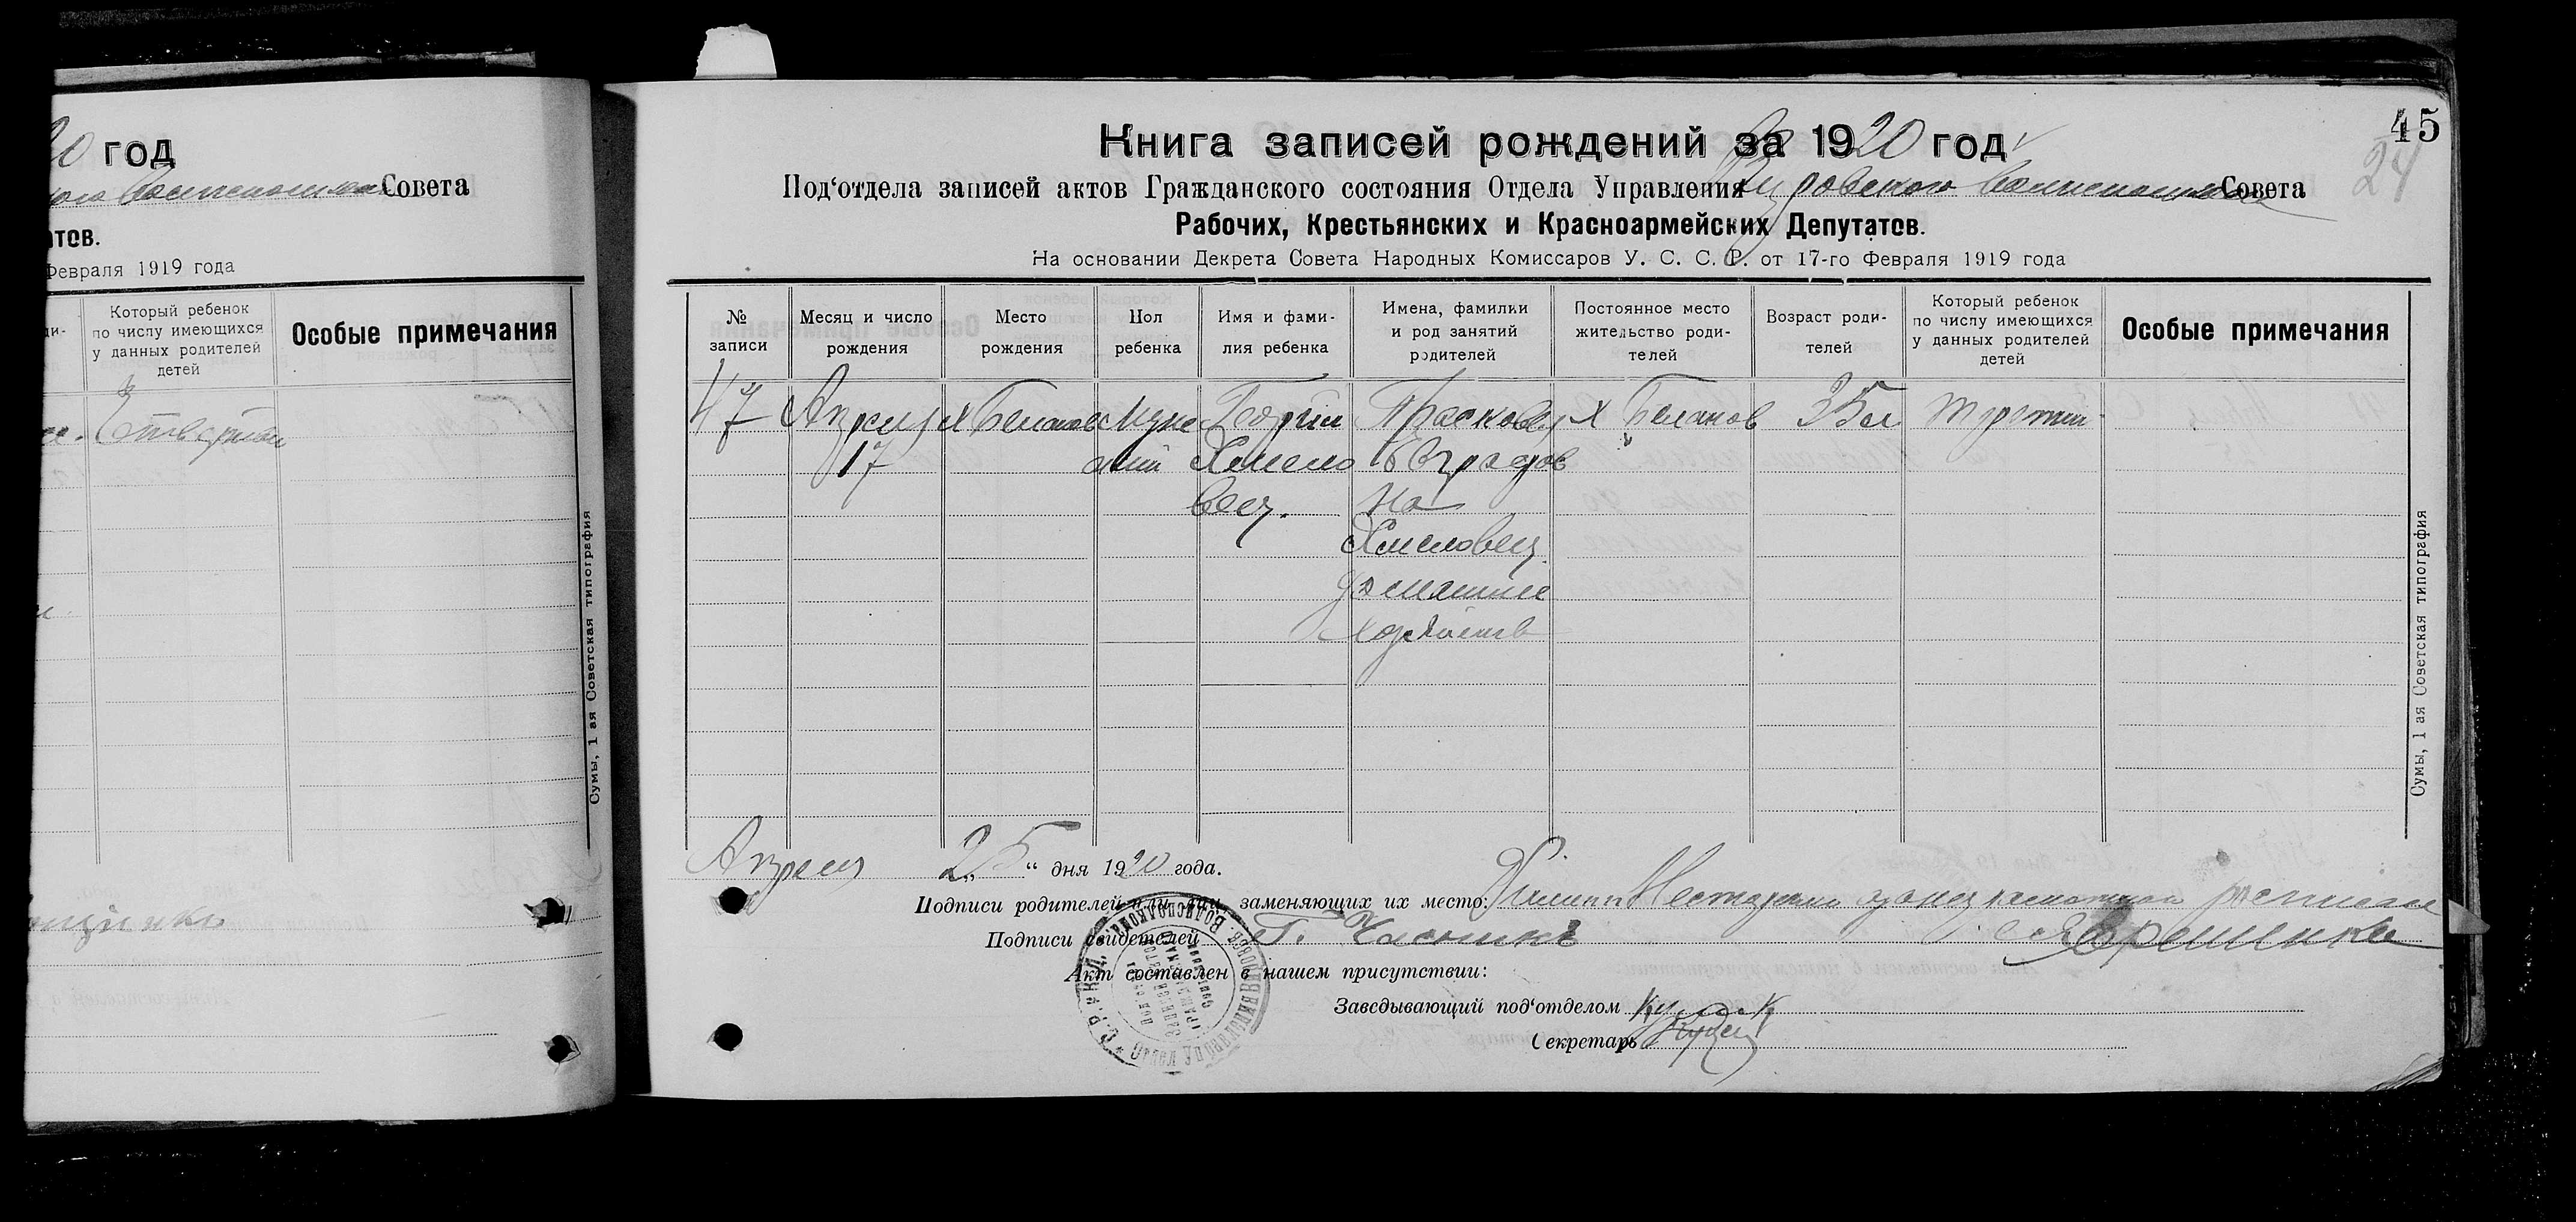 20 год
Совета
атов.
Февраля 1919 года
ди-
Который ребенок
по числу имеющихся
у данных родителей
детей
Особые примечания
Сумы, 1 ая Советская типография
45
24
Книга записей рождений за 1920 год
Под‘отдела записей актов Гражданского состояния Отдела Управления Совета
Рабочих, Крестьянских и Красноармейских Депутатов.
На основании Декрета Совета Народных Комиссаров У. С. С. Р. от 17-го Февраля 1919 года
№
записи
Месяц и число
рождения
Место
рождения
Пол
ребенка
Имя и фами-
лия ребенка
Имена, фамилии
и род занятий
родителей
Постоянное место
жительство роди-
телей
Возраст роди-
телей
Который ребенок
по числу имеющихся
у данных родителей
детей
Особые примечания
47
Апреля
17
Х Беланов
Муже
ский
Георгий
Хмело
вец.
Прасковья
Евградов
на
Хмеловец
домашнее
хозяйств
Х Беланов
35 л
третий
Сумы, 1 ая Советская типография
Апреля „25“ дня 1920 года.
Подписи родителей или лиц, заменяющих их место:
Подписи свидетелей Г. Часникъ
Акт составлен в нашем присутствии:
Заведывающий под‘отделом
Секретарь